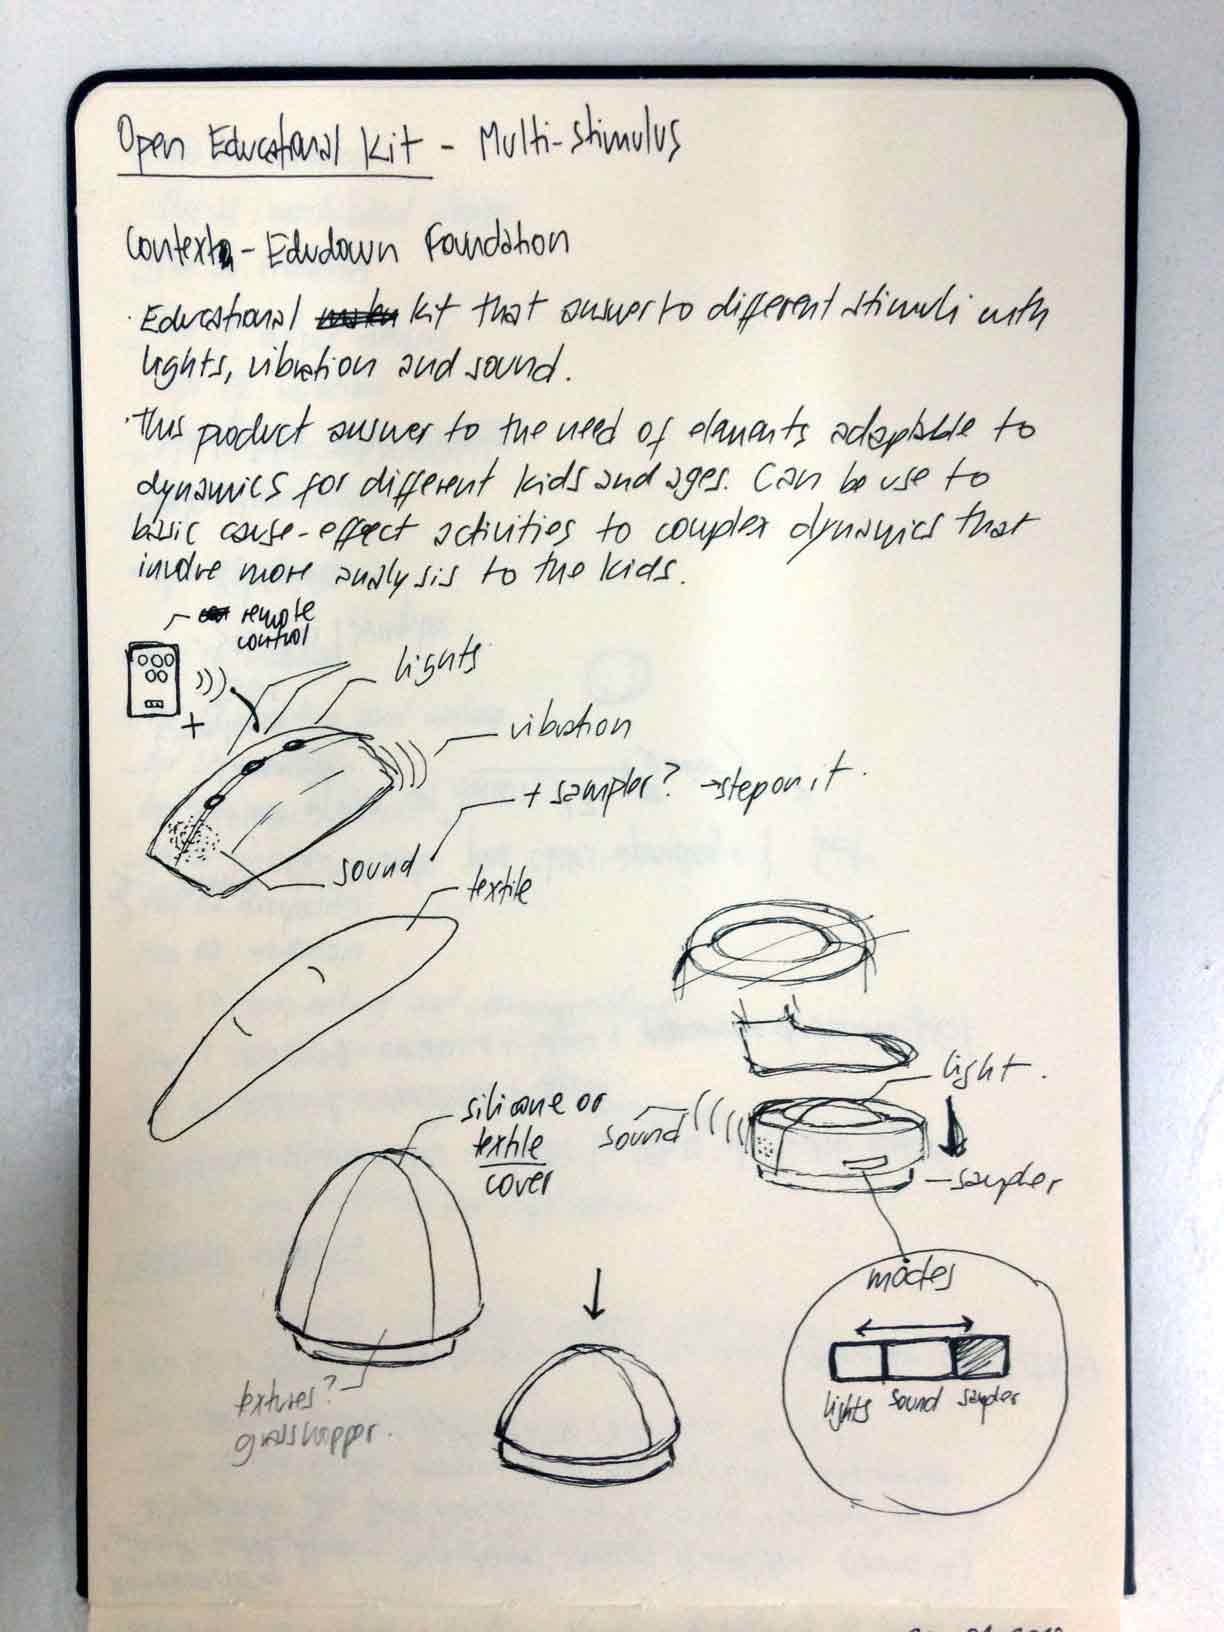 Open Educational Kit - Multi-stimulus
Context - Edudown Foundation
· Educational kit that answer to different stimuli with
lights, vibration and sound.
· This product answer to the need of elements adaptable to
dynamics for different kids and ages. Can be use to
basic cause-effect activities to complex dynamics that
involve more analysis to the kids.
remote
control
lights
+
vibration
+ sampler? → step on it.
sound
textile
light.
silicone or
textile
cover
sound
sampler
modes
lights sound sampler
textures?
grasshopper.